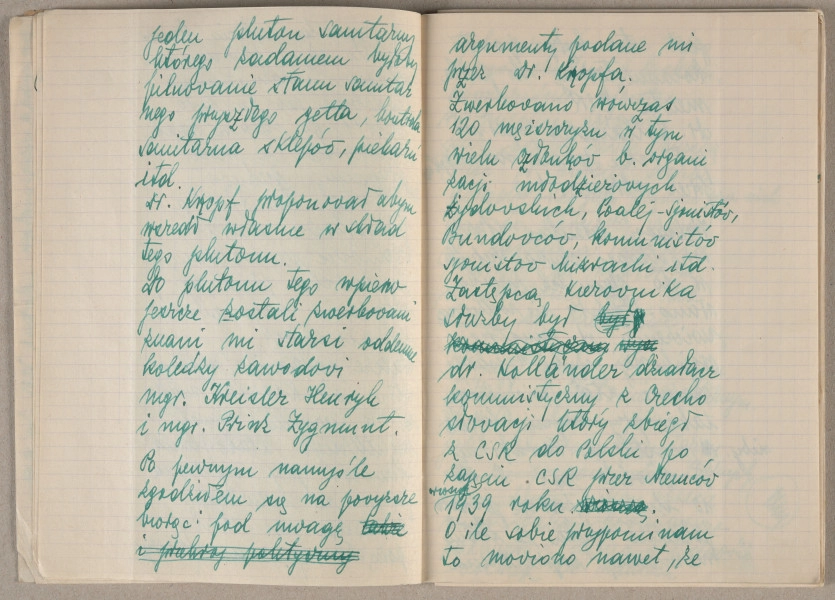 jeden pluton sanitarny
którego zadaniem byłoby
pilnowanie stanu sanitar
nego przyszłego getta, kontrola
sanitarna sklepów, piekarń
itd.
Dr. Kropf proponował abym
wszedł właśnie w skład
tego plutonu.
Do plutonu tego wpierw
jeszcze zostali zwerbowani
znani mi starsi oddawna
koledzy zawodowi
mgr. Kreisler Henryk
i mgr. Prinz Zygmunt.
Po pewnym namyśle
zgodziłem się na powyższe
biorąc pod uwagę także
i przekrój polityczny
argumenty podane mi
przez Dr. Kropfa.
Zwerbowano wówczas
120 mężczyzn w tym
wielu członków b. organi
zacji młodzieżowych
Żydowskich, Poalej-Sjonistów,
Bundowców, komunistów
sjonistów Mizrachi itd.
Zastępcą kierownika
służby był był
komunistyczny
dr. Holländer działacz
komunistyczny z Czecho
słowacji który zbiegł
z CSR do Polski po
zajęciu CSR przez Niemców
wiosną
1939 roku wiosną.
O ile sobie przypominam
to mówiono nawet, że